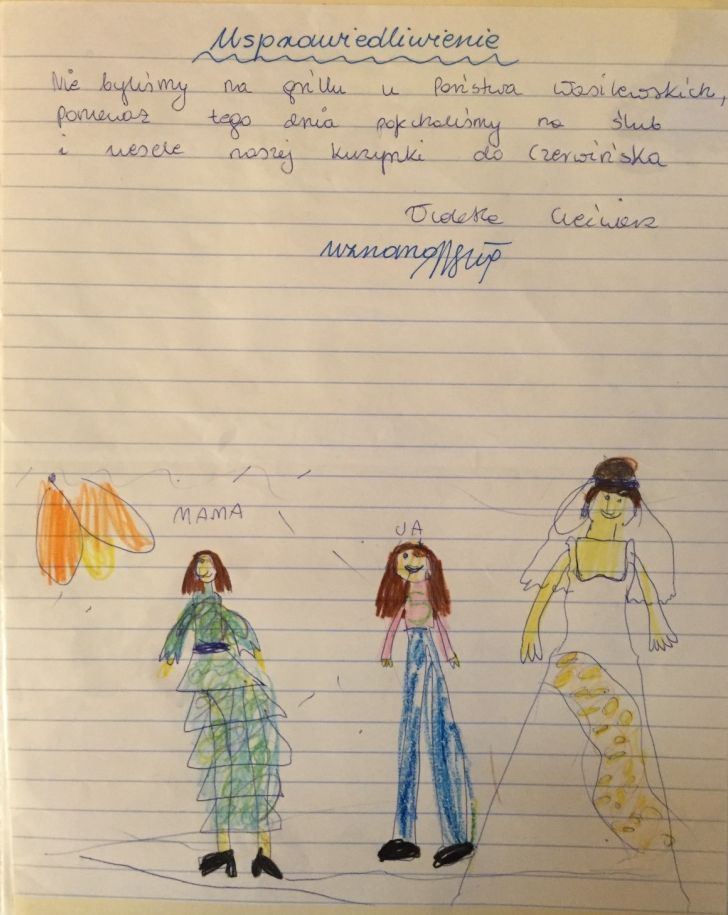 Usprawiedliwienie
Nie byliśmy na grillu u Państwa Wasilewskich,
ponieważ tego dnia pojechaliśmy na ślub
i wesele naszej kuzynki do Czerwińska
Violetta
uznano
MAMA
JA